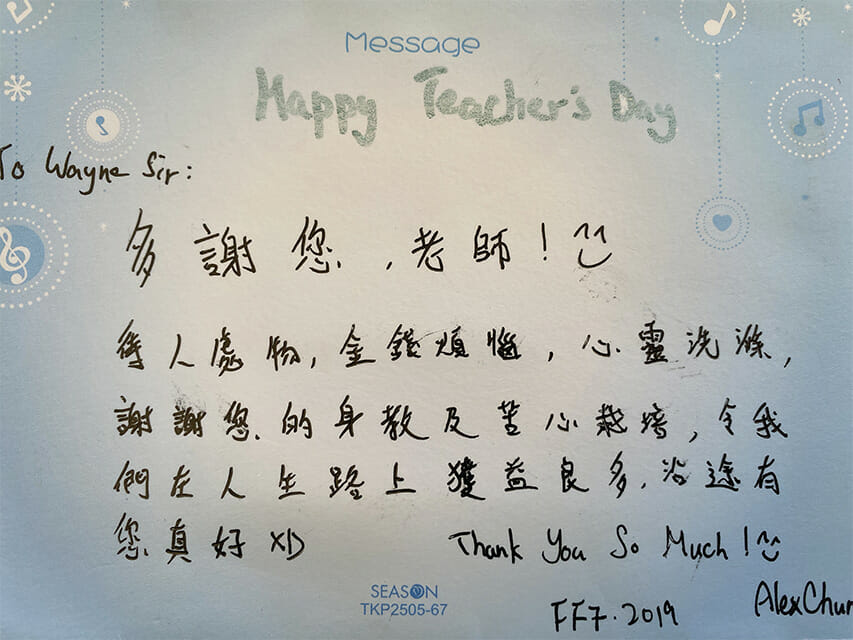 Message
Happy Teacher's Day
To Wayne Sir:
多謝您,老師!
待人處物,金錢煩惱,心靈洗滌,
謝謝您的身教及苦心栽培,令我
們在人生路上獲益良多,沿途有
您真好 XD Thank You So Much!
SEASON
TKP2505-67
FF7.2019
Alex